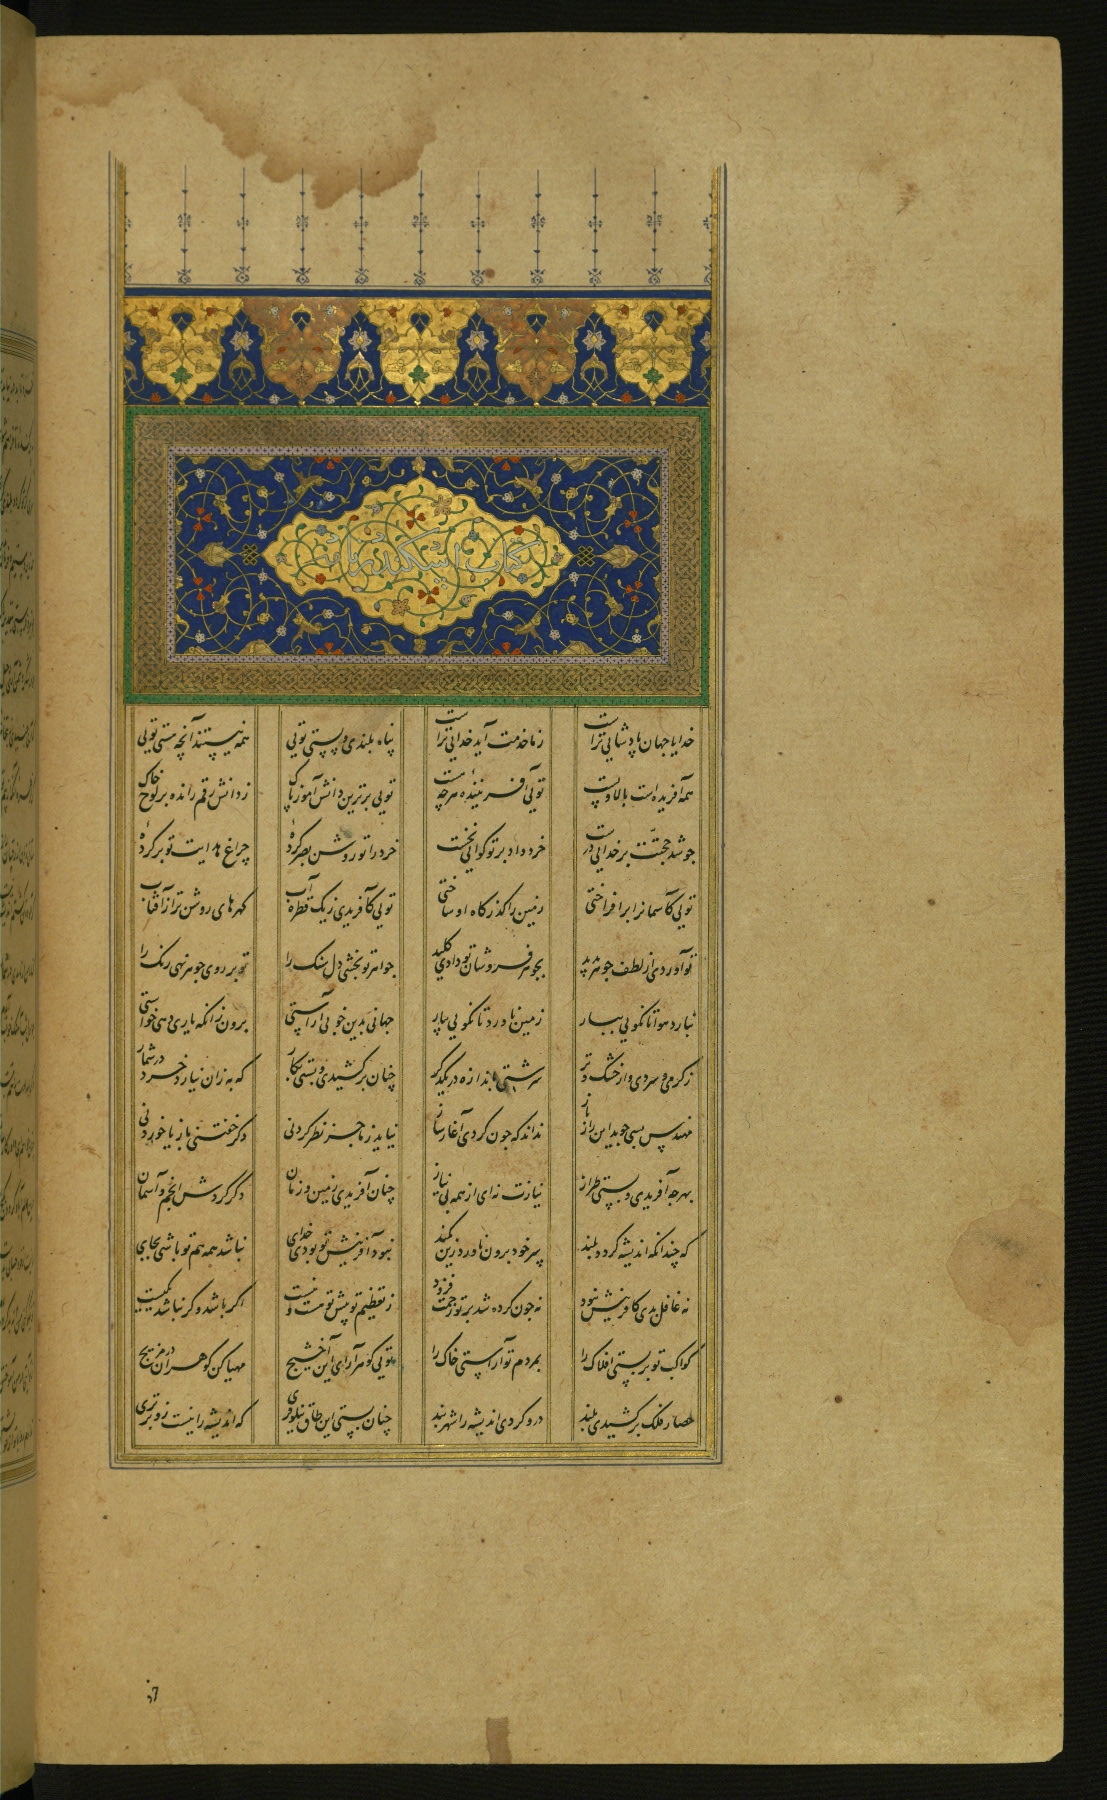 کتاب اسکندرنامه
خدایا جهان پادشایی تراست ز ما خدمت آید خدایی تراست پناه بلندی و پستی تویی همه نیستند آنچه هستی تویی
همه آفریده است بالا و پست تویی آفریننده هرچه هست تویی برترین دانش آموز پاک ز دانش رقم رانده بر لوح خاک
جو شد حجتت بر خدایی درست خرد داد بر تو کوایی نخست خرد را تو روشن بصر کرده چراغ هدایت تو بر کرده
تویی کآسمانرا برافراختی زمین را کذرکاه او ساختی تویی کآفریدی ز یک قطره آب کهرهای روشن‌تر از آفتاب
تو آوردی از لطف جوهر پدید بجوهرفروشان تو دادی کلید جواهر تو بخشی دل سنک را تو بر روی جوهر نهی رنک را
نبارد هوا تا نکویی ببار زمین ناورد تا نکویی بیار جهانی بدین خوبی آراستی برون زانکه یاری‌دهی خواستی
ز کرمی و سردی و از خشک و تر سرشتی باندازه در یکدکر چنان برکشیدی و بستی نکار که به زان نیارد خرد در شمار
مهندس بسی جوید این راز باز نداند که جون کردی آغاز ساز نیاید ز ما جز نظر کردنی دکر خفتنی باز یا خوردنی
بهرجه آفریدی و بستی طراز نیازت نه‌ای از همه بی نیاز چنان آفریدی زمین و زمان دکر کردش انجم و آسمان
که چندانکه اندیشه کردد بلند سر خود برون ناورد زین کمند نبود آفرینش تو بودی خدای نباشد همه هم تو باشی بجای
نه غافل بدی کافرینش نبود نه جون کرده شد بر تو زحمت فزود ز تعظیم تو پیش تو هست و نیست اکر باشد وکر نباشد یکیست
کواکب تو بربستی افلاک را بمردم تو آراستی خاک را تویی کوهرآرای این آخشیج مهیا کن کوهران در مزیج
حصار فلک برکشیدی بلند در و کردی اندیشه را شهربند چنان بستی این طاق نیلوفری که اندیشه را نیست زو برتری